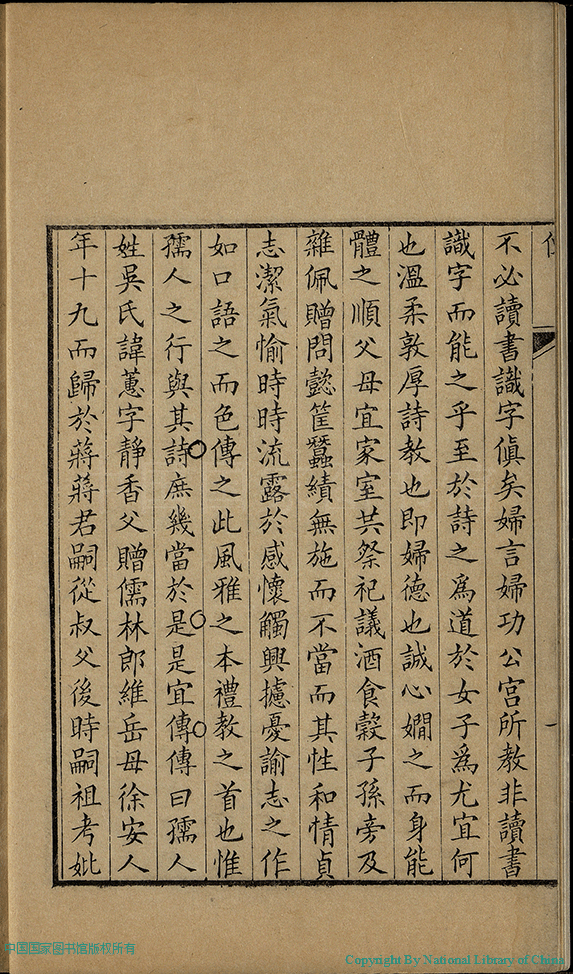 不必讀書識字傎矣婦言婦功公宮所教非讀書
識字而能之乎至於詩之為道於女子為尤宜何
也溫柔敦厚詩教也即婦德也誠心嫺之而身能
體之順父母宜家室共祭祀議酒食穀子孫旁及
雜佩贈問懿筐蠶績無施而不當而其性和情貞
志潔氣愉時時流露於感懷觸興攄憂諭志之作
如口語之而色傳之此風雅之本禮教之首也惟
孺人之行與其詩庶幾當於是是宜傳傳曰孺人
姓吳氏諱蕙字靜香父贈儒林郎維岳母徐安人
年十九而歸於蔣蔣君嗣從叔父後時嗣祖考妣
一
中国国家图书馆版权所有
Copyright By National Library of China